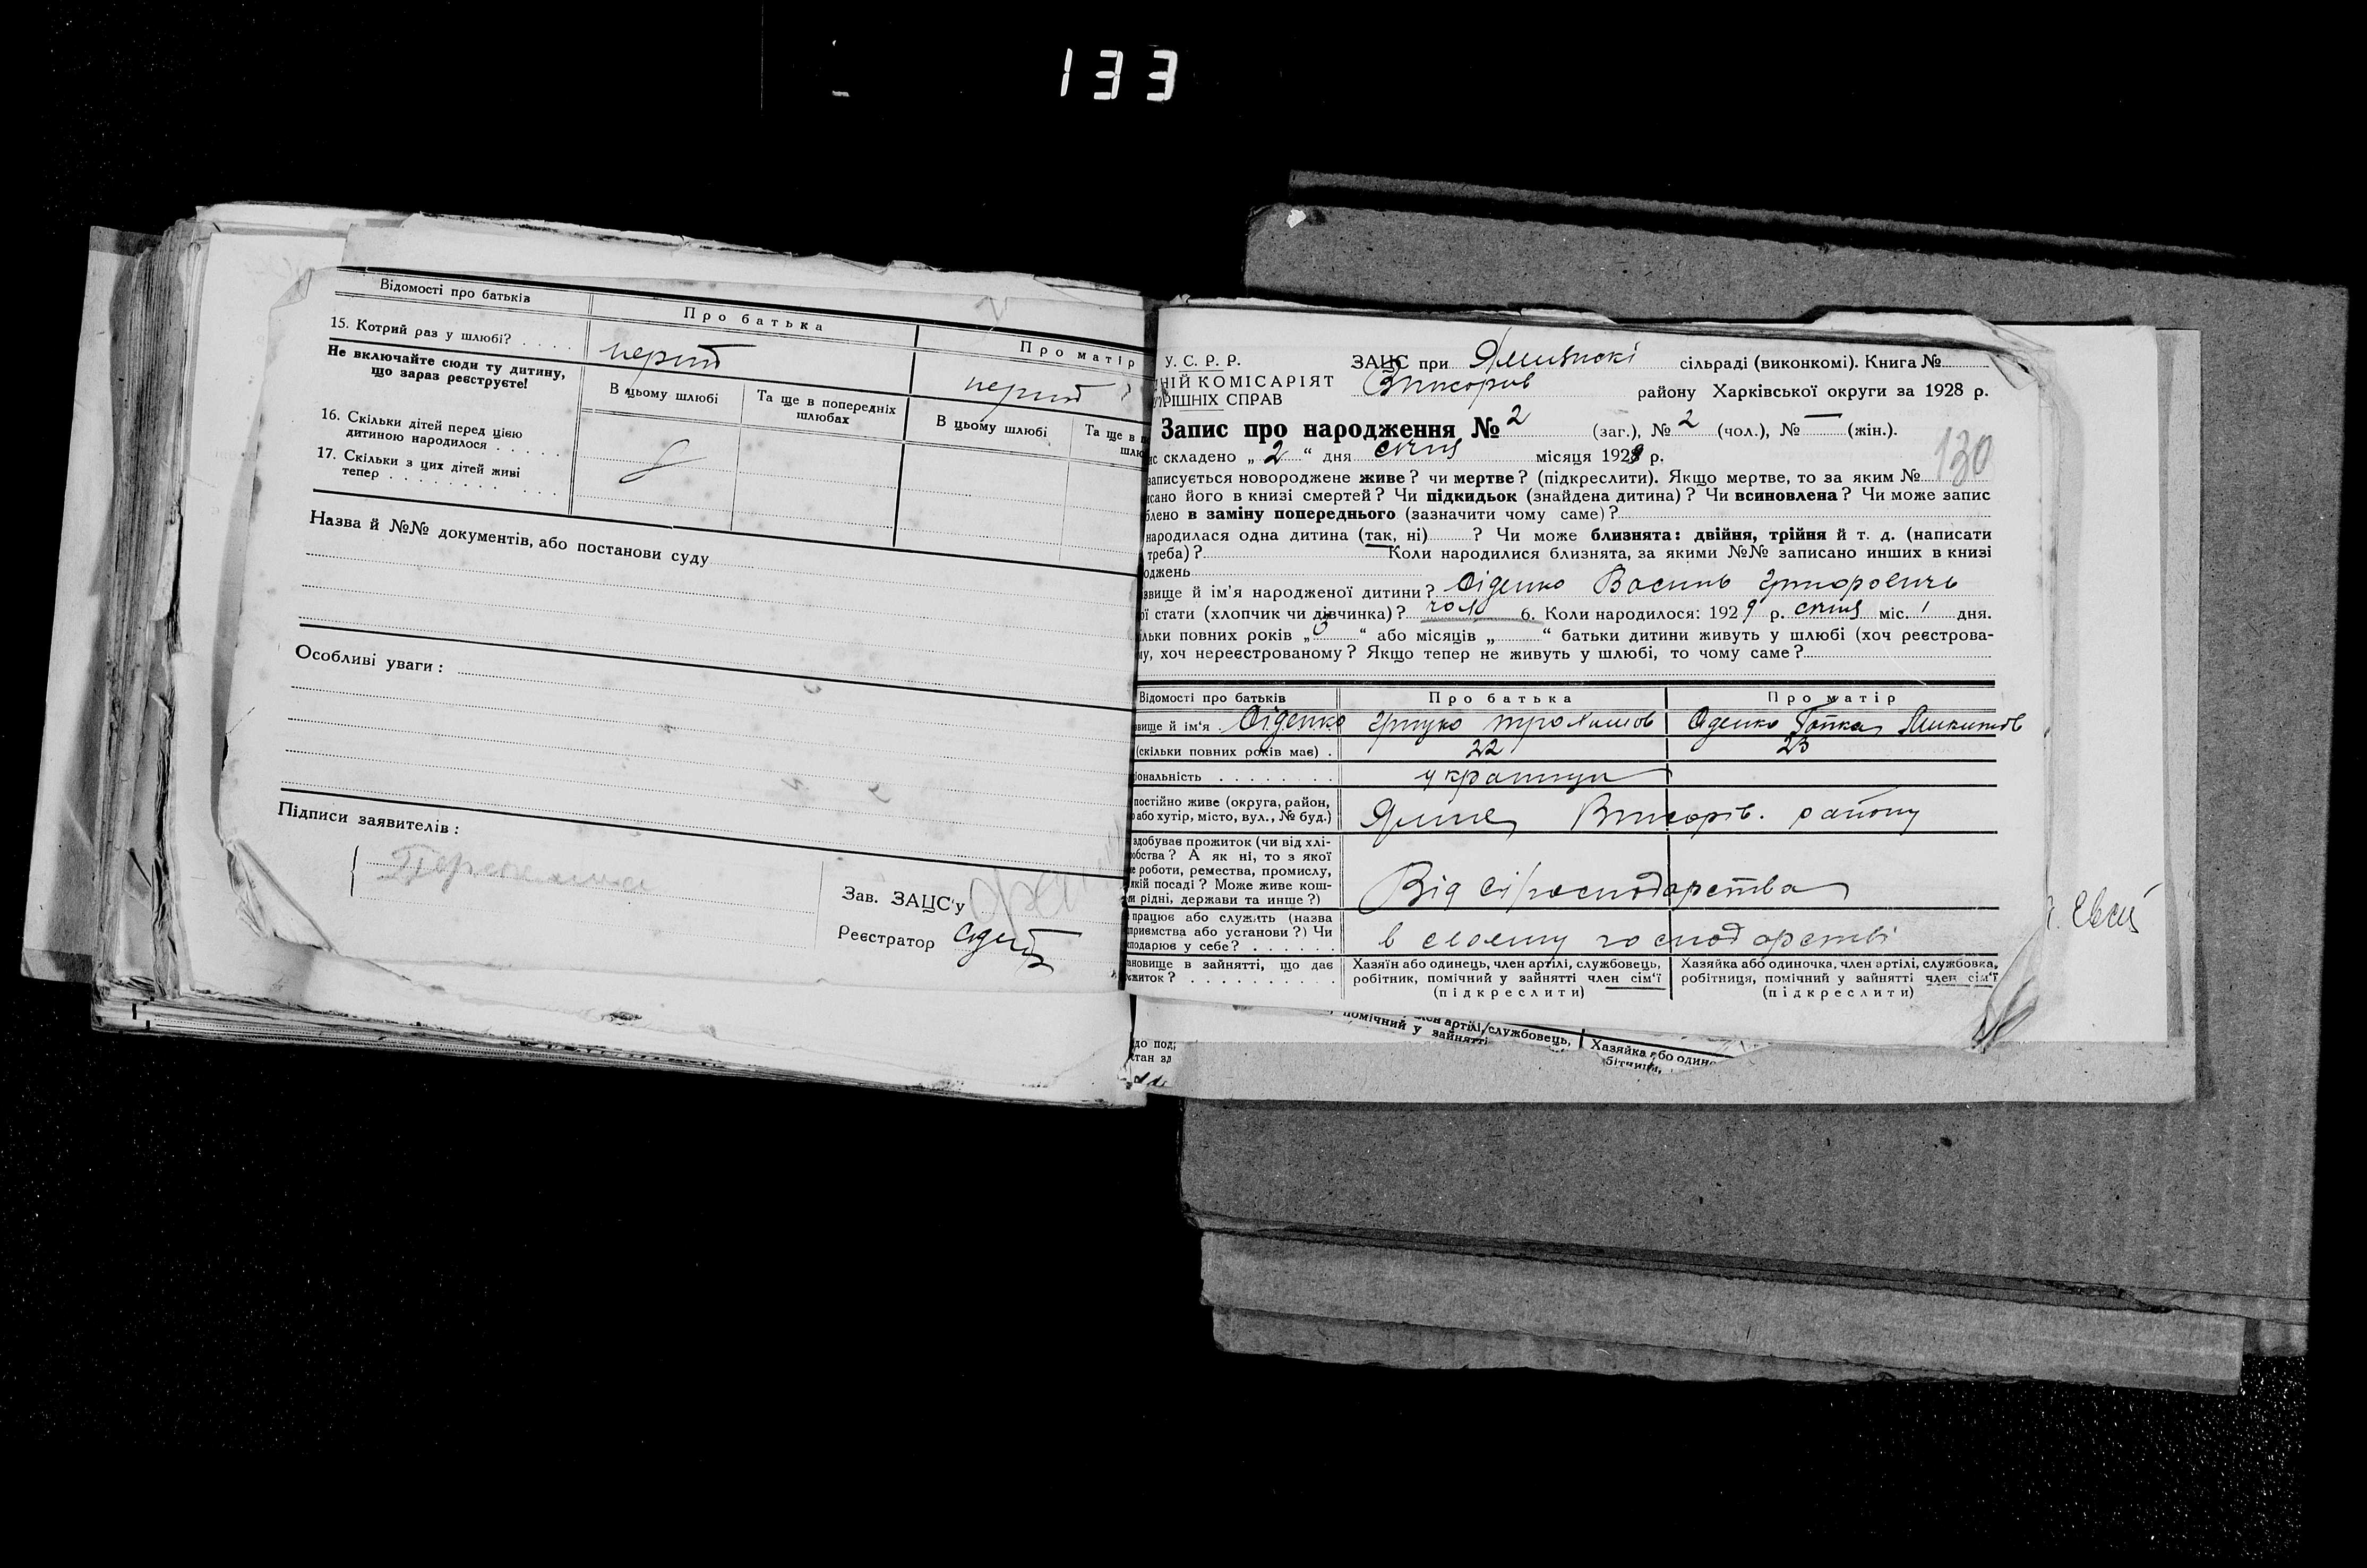 133
Відомості про батьків
Про батька
Про матір
15. Котрий раз у шлюбі? . . . .
перший
перший
Не включайте сюди ту дитину,
що зараз реєструєте!
В цьому шлюбі
Та ще в попередніх
шлюбах
В цьому шлюбі
Та ще в п
шлю
16. Скільки дітей перед цією
дитиною народилося . . . . .
17. Скільки з цих дітей живі
тепер . . . . . . . . . . .
Назва й №№ документів, або постанови суду
Особливі уваги :
Підписи заявителів :
Зав. ЗАЦС'у
Реєстратор
У. С. Р. Р.
НІЙ КОМІСАРІЯТ
РІШНІХ СПРАВ
ЗАЦС при сільраді (виконкомі). Книга №
району Харківської округи за 1928 р.
Запис про народження № 2 (заг.), № 2 (чол.), № — (жін.).
130
с складено „ 2 “ дня січня місяця 1929 р.
записується новороджене живе? чи мертве? (підкреслити). Якщо мертве, то за яким №
исано його в книзі смертей? Чи підкидьок (знайдена дитина)? Чи всиновлена? Чи може запис
блено в заміну попереднього (зазначити чому саме)?
народилася одна дитина (так, ні) ? Чи може близнята: двійня, трійня й т. д. (написати
треба)? Коли народилися близнята, за якими №№ записано инших в книзі
оджень
звище й ім'я народженої дитини? Діденко Василь Григорович
ої стати (хлопчик чи дівчинка)? чол 6. Коли народилося: 1929 р. січня міс. 1 дня.
льки повних років „ “ або місяців „ “ батьки дитини живуть у шлюбі (хоч реєстрова-
му, хоч нереєстрованому? Якщо тепер не живуть у шлюбі, то чому саме?
Відомості про батьків
Про батька
Про матір
звище й ім'я . Діденко
(скільки повних років має) .
22
23
іональність . . . . . . . .
українці
постійно живе (округа, район,
або хутір, місто, вул., № буд.)
району
здобуває прожиток (чи від хлі-
обства? А як ні, то з якої
е роботи, ремества, промислу,
якій посаді? Може живе кош-
м рідні, держави та инше?)
Від с/господарства
працює або служить (назва
приємства або установи?) Чи
сподарює у себе? . . . . . .
в своєму господарстві
ановище в зайнятті, що дає
житок? . . . . . . . . . .
Хазяїн або одинець, член артілі, службовець,
робітник, помічний у зайнятті член сім'ї
(підкреслити)
Хазяйка або одиночка, член артілі, службовка,
робітниця, помічний у зайнятті член сім'ї
(підкреслити)
лен артілі, службовець,
помічний у зайнятті
Хазяйка або один
бітниця,
до под
тан зд